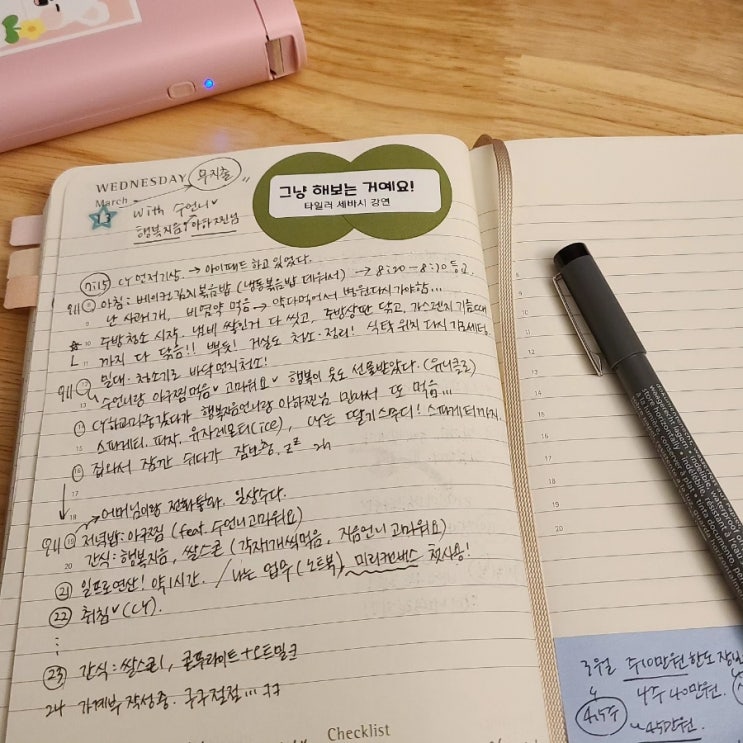 WEDNESDAY 무지출
March
13 with 수언니
행복지음, 아하ㅈ님
그냥 해보는 거예요!
타일러 세바시 강연
7:15 CY 먼저기상. → 아이패드 하고 있었다.
아침: 베이컨김치볶음밥 (냉동볶음밥 데워서) → 8:20 - 8:30 등교.
난 사과1개, 비염약 먹음 → 약다먹어서 병원다시가야함...
주방청소 시작. 냄비 쌓인거 다 씻고, 주방상판 닦고, 가스렌지 기름때
까지 다 닦음!! 뿌듯! 거실도 청소·정리! 식탁 위치 다시 가로세팅.
밀대·청소기로 바닥먼지청소!
수언니랑 아구찜먹음 고마워요 행복이 옷도 선물받았다. (유니클로)
CY하교마중갔다가 행복지음언니랑 아하ㅈ님 만나서 또 먹음...
스파게티, 피자, 유자레몬티(ice), CY는 딸기스무디! 스파게티까지.
집와서 잠깐 쉬다가 잠보충. zz 2h
어머님이랑 전화통화. 일상수다.
저녁밥: 아구찜 (feat. 수언니고마워요)
간식: 행복지음, 쌀스콘 (각자1개씩먹음, 지음언니 고마워요)
21 일프로연산! 약 1시간. / 나는 업무 (노트북) 미리캔버스 첫사용!
22 취침 (CY).
23 간식: 쌀스콘1, 콜푸라이트+오트밀크
24 가계부 작성중. 구구절절... ㅋㅋ
Checklist
3월 주10만원 한도 잡
4주 40만원.
4.5주 45만원.